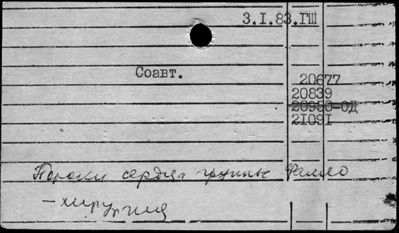 3.I.83.ГШ
Соавт.
20677
20839
20950-ОД
21091
Пороки сердца группы Фалло
- хирургия